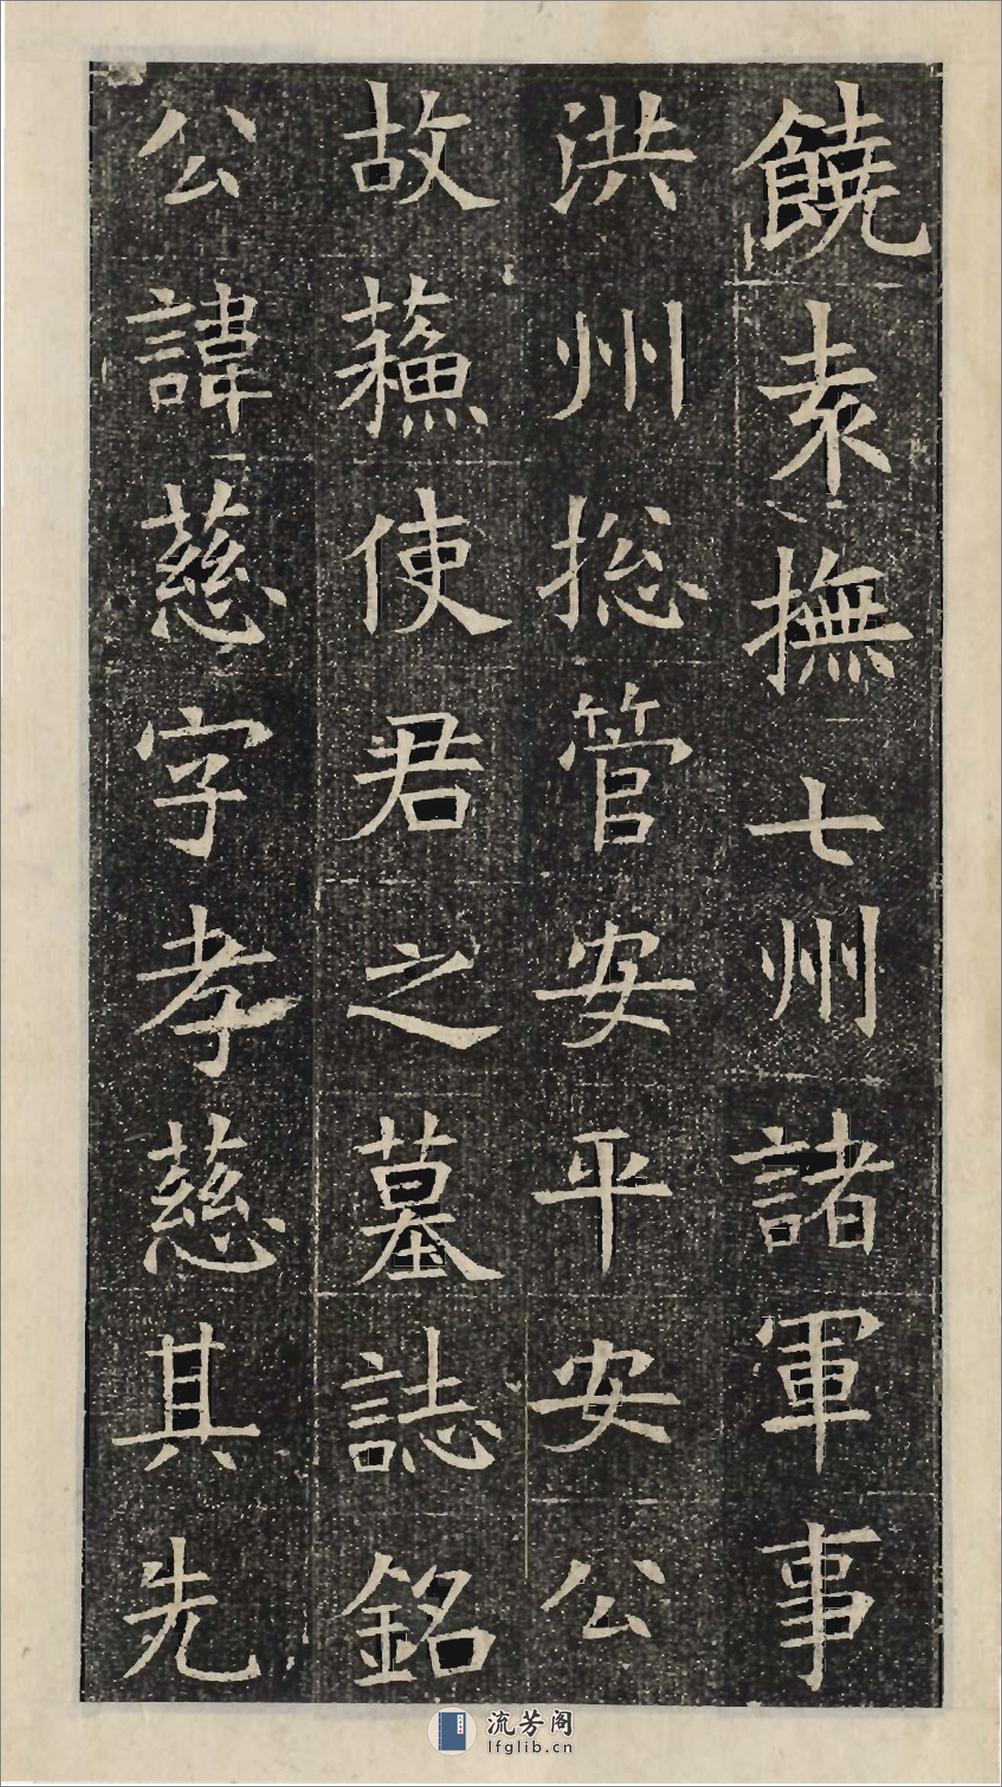 饒袁撫七州諸軍事
洪州捴管安平安公
故蘓使君之墓誌銘
公諱慈字孝慈其先
流芳阁
lfglib.cn